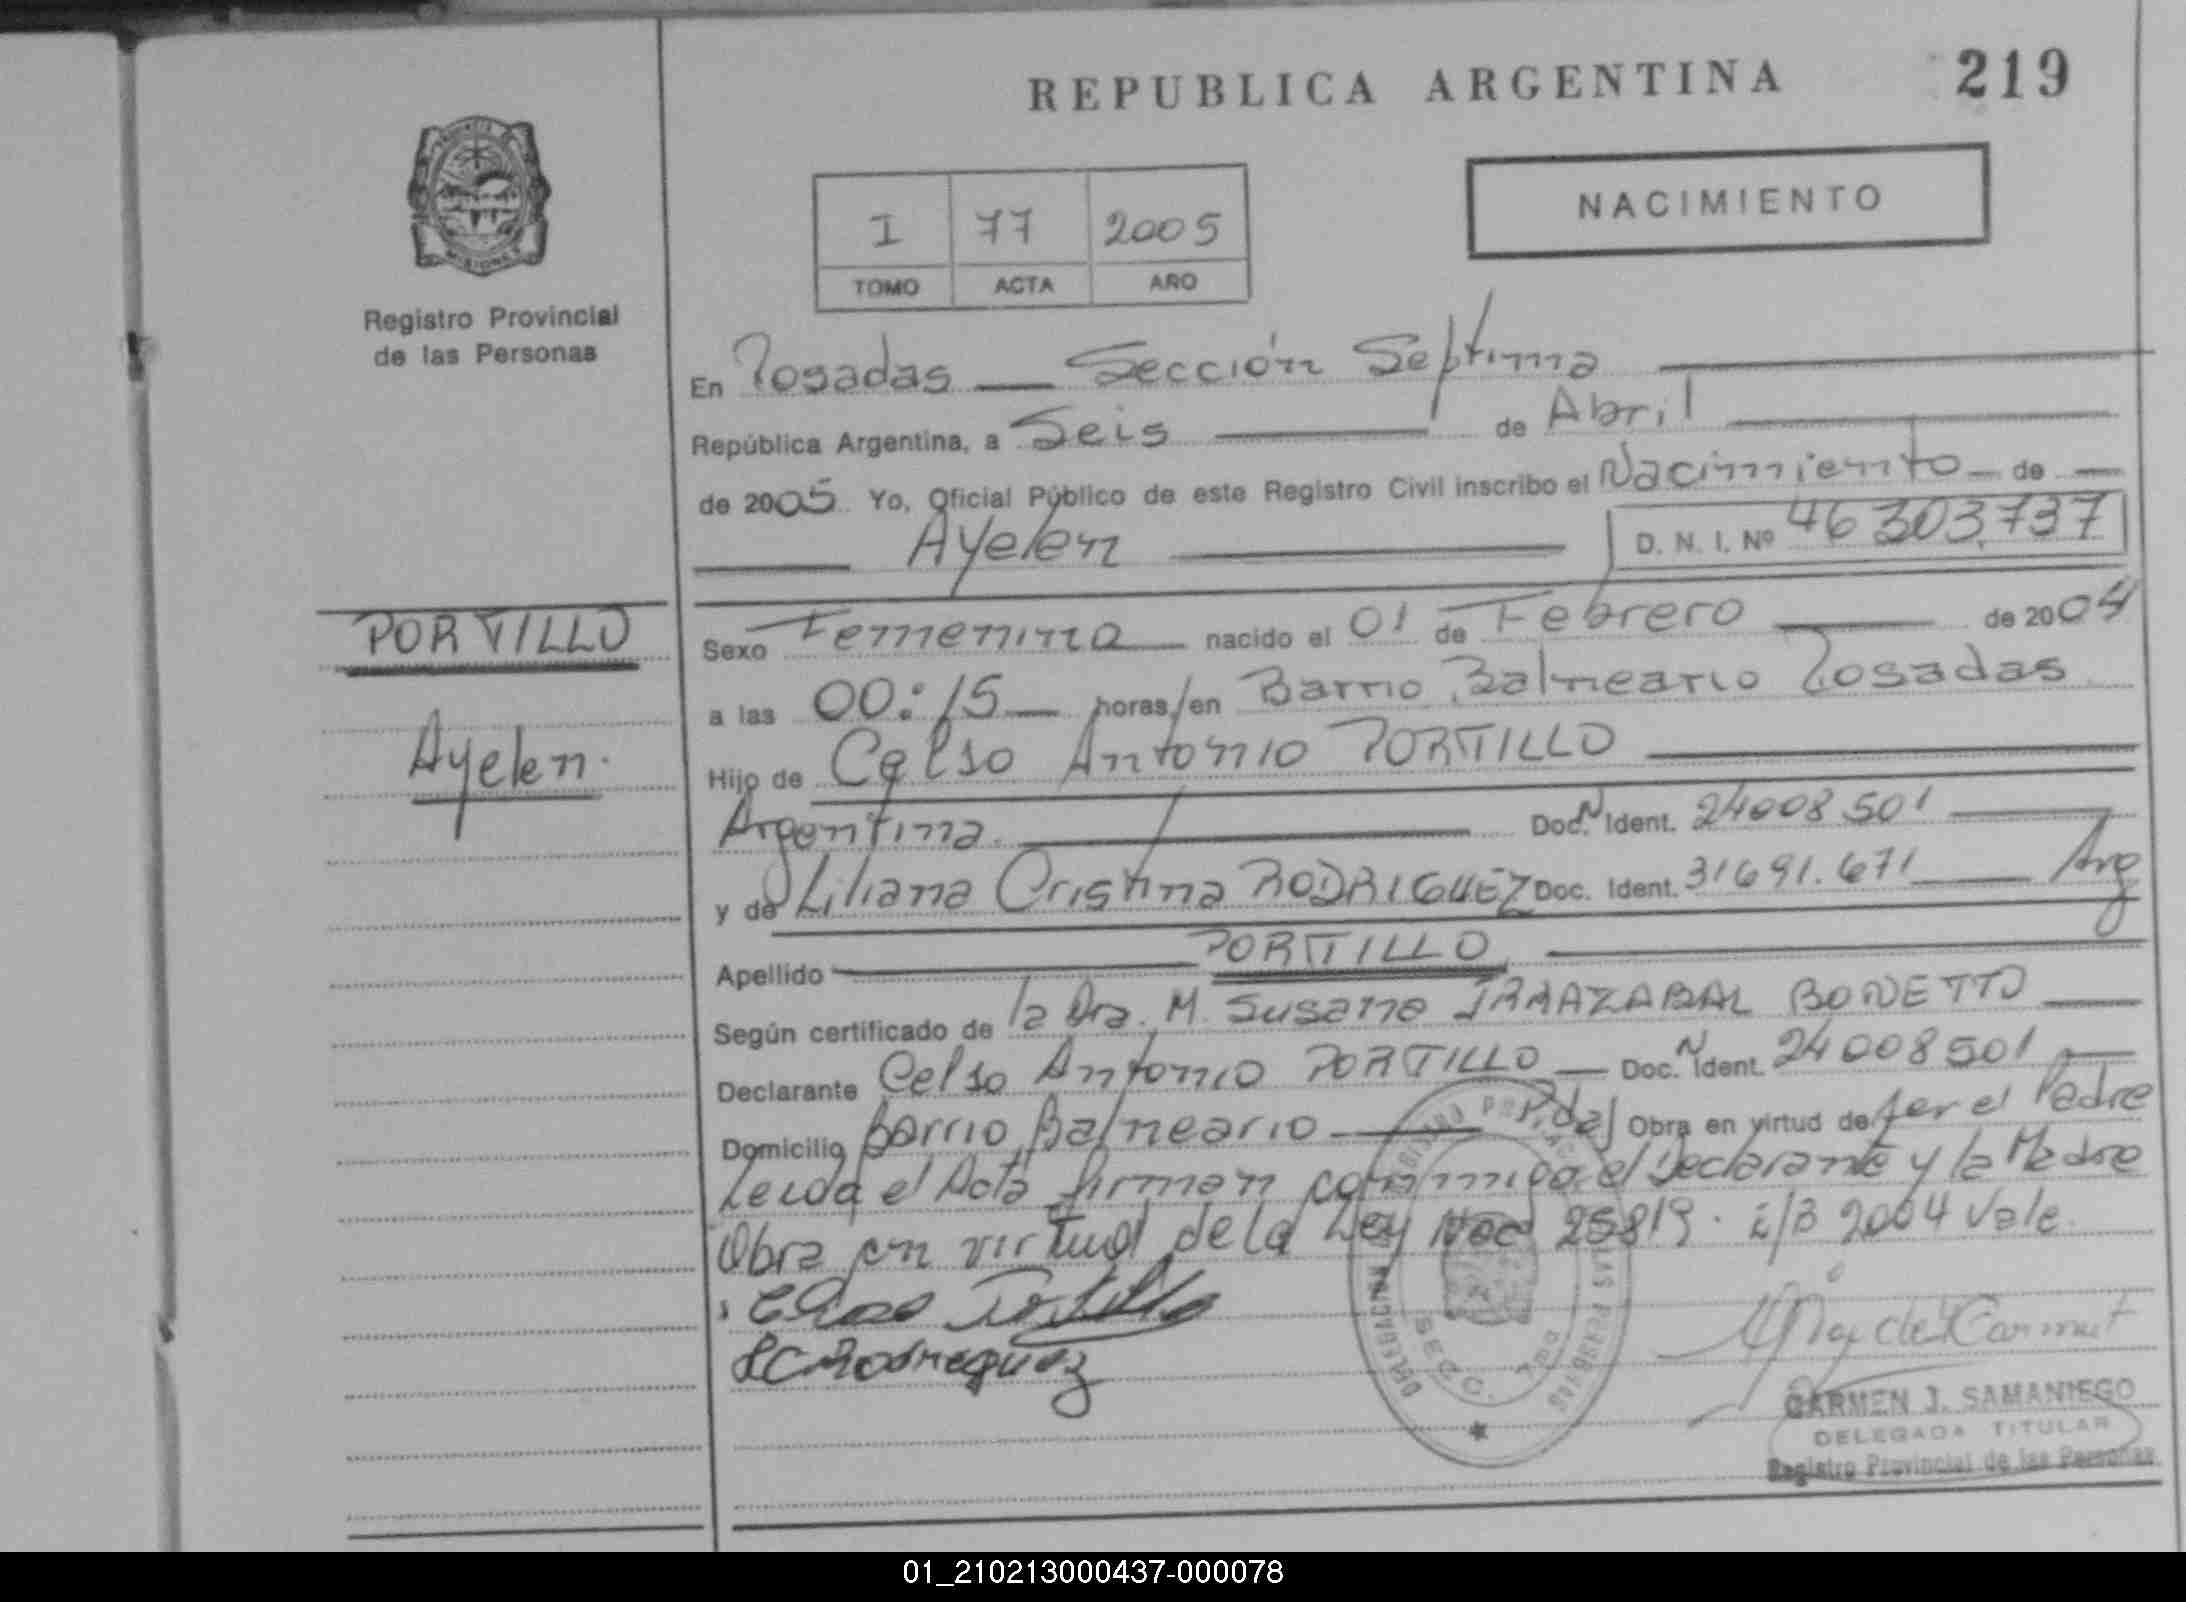 REPUBLICA ARGENTINA 219
NACIMIENTO
I 77 2005
TOMO ACTA AÑO
PROVINCIA DE
MISIONES
Registro Provincial
de las Personas
En Posadas — Sección Septima
República Argentina, a Seis de Abril
de 2005. Yo, Oficial Público de este Registro Civil inscribo el Nacimiento de
Ayelen D. N. I. Nº 46303.737
PORTILLO
Ayelen.
Sexo Femenino nacido el 01 de Febrero de 2004
a las 00:15 horas, en Barrio Balneario Posadas
Hijo de Celso Antonio PORTILLO
Argentina. Doc. N Ident. 24008501
y de Liliana Cristina RODRIGUEZ Doc. Ident. 31691.671 Arg
Apellido PORTILLO
Según certificado de la Dra. M. Susana IRRAZABAL BONETTO
Declarante Celso Antonio PORTILLO — Doc. N Ident. 24008501
Domicilio Barrio Balneario — Pdas Obra en virtud de ser el Padre
Leida el Acta firman conmigo el Declarante y la Madre
Obra en virtud de la Ley Nac 25819. E/B 2004 Vale.
Portillo
LC Rodriguez
SECC. 7ma
CARMEN J. SAMANIEGO
DELEGADA TITULAR
Registro Provincial de las Personas
01_210213000437-000078